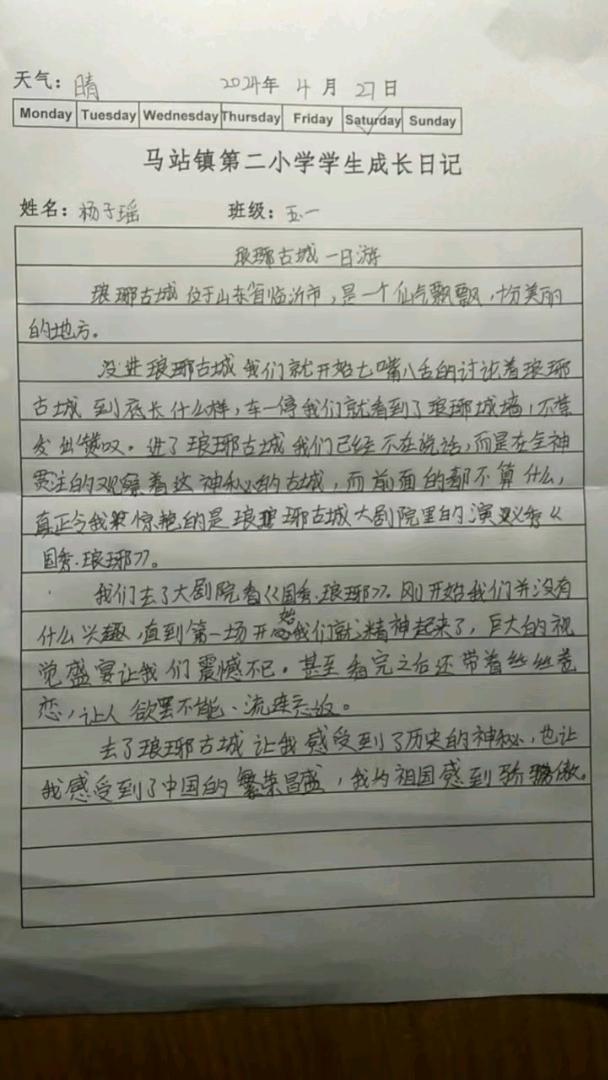 天气：晴 2024年 4 月 27日
Monday Tuesday Wednesday Thursday Friday Saturday Sunday
马站镇第二小学学生成长日记
姓名：杨子瑶 班级：五一
琅琊古城一日游
琅琊古城位于山东省临沂市，是一个仙气飘飘，十分美丽
的地方。
没进琅琊古城我们就开始七嘴八舌的讨论着琅琊
古城到底长什么样，车一停我们就看到了琅琊城墙，不禁
发出赞叹。进了琅琊古城我们已经不在说话，而是在全神
贯注的观察着这神秘的古城，而前面的都不算什么，
真正令我惊艳的是琅琊古城大剧院里的演义秀《
国秀·琅琊》。
我们去了大剧院看《国秀·琅琊》。刚开始我们并没有
什么兴趣，直到第一场开始我们就精神起来了，巨大的视
觉盛宴让我们震撼不已。甚至看完之后还带着丝丝眷
恋，让人欲罢不能、流连忘返。
去了琅琊古城让我感受到了历史的神秘，也让
我感受到了中国的繁荣昌盛，我为祖国感到骄傲。